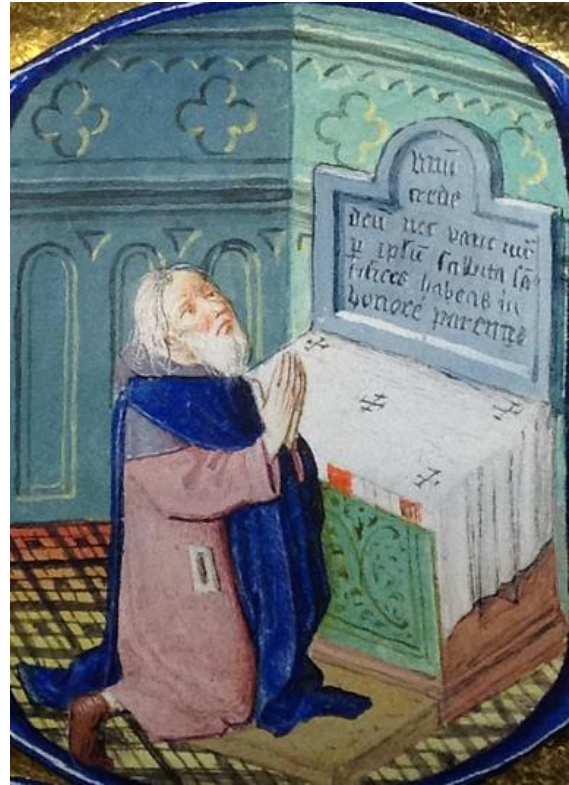 vnū
crede
deū nec vane iur̄
ꝑ ipsū sabbata sāᶜ
tifices habeas in
honore parentes